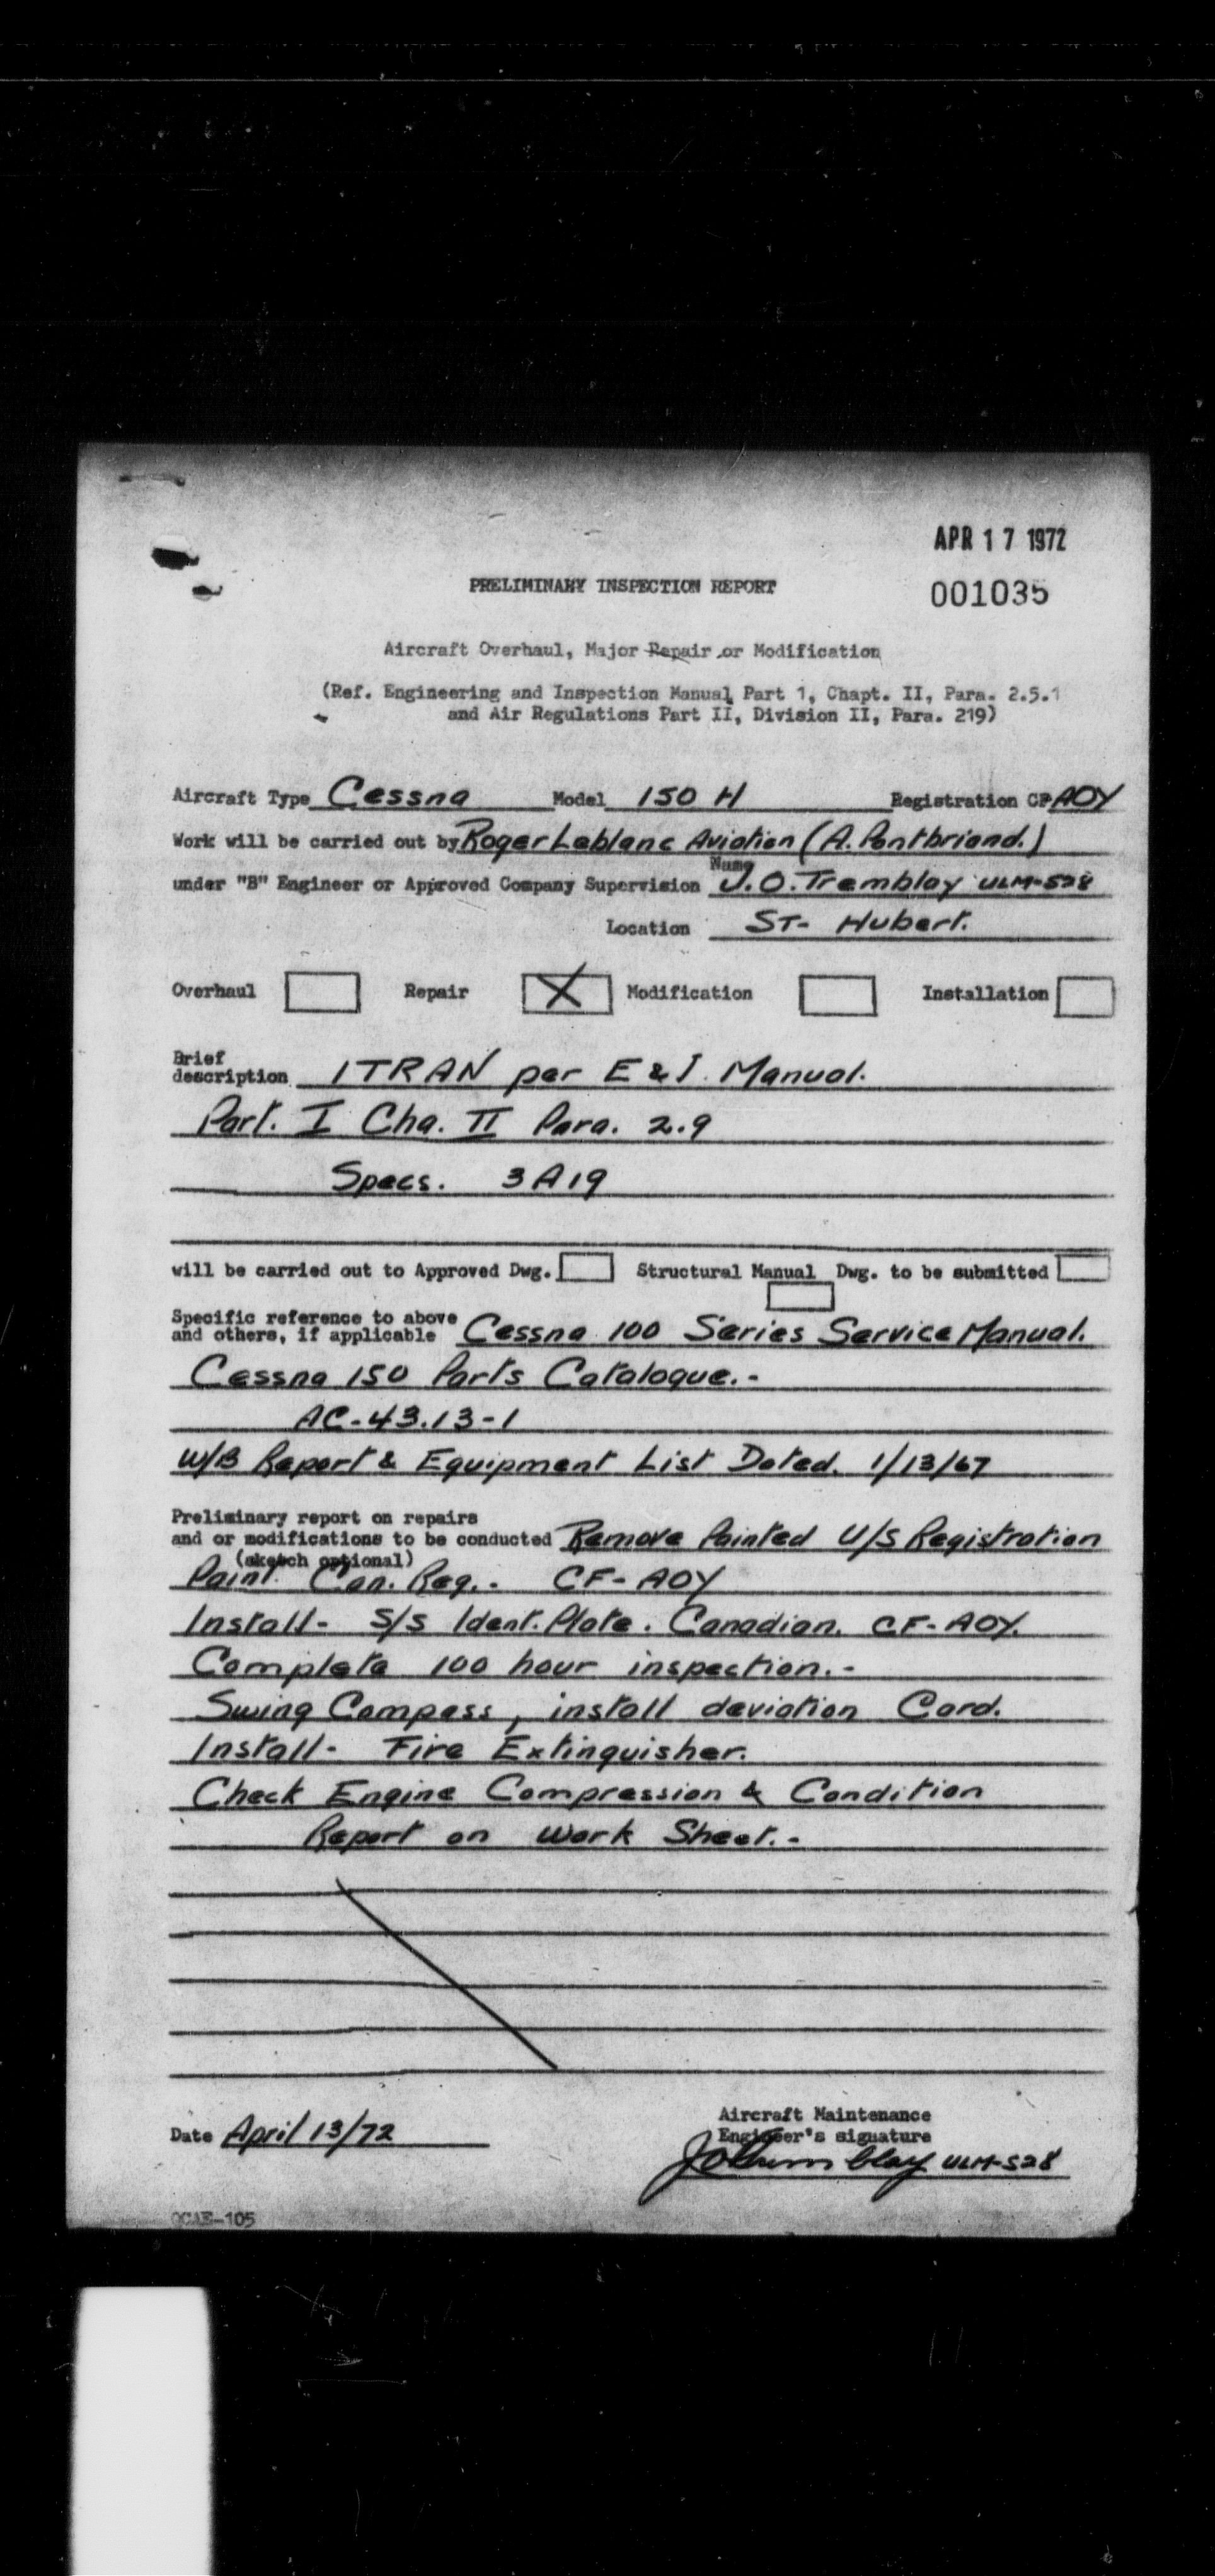 APR 17 1972
PRELIMINARY INSPECTION REPORT
001035
Aircraft Overhaul, Major Repair or Modification
(Ref. Engineering and Inspection Manual Part 1, Chapt. II, Para. 2.5.1
and Air Regulations Part II, Division II, Para. 219)
Aircraft Type Cessna Model 150 H Registration CF AOY
Work will be carried out by Roger Leblanc Aviation (A. Pontbriand.)
Name
under "B" Engineer or Approved Company Supervision J.O. Tremblay ULM-528
Location ST- Hubert.
Overhaul Repair X Modification Installation
Brief
description ITRAN per E & I. Manual.
Part. I Cha. II Para. 2.9
Specs. 3A19
will be carried out to Approved Dwg. Structural Manual Dwg. to be submitted
Specific reference to above
and others, if applicable Cessna 100 Series Service Manual.
Cessna 150 Parts Catalogue.-
AC-43.13-1
W/B Report & Equipment List Dated. 1/13/67
Preliminary report on repairs
and or modifications to be conducted Remove Painted U/S Registration
(sketch optional)
Paint Can. Reg.- CF-AOY
Install- S/S Ident. Plate. Canadian. CF-AOY.
Complete 100 hour inspection.-
Swing Compass, install deviation Card.
Install- Fire Extinguisher.
Check Engine Compression & Condition
Report on Work Sheet.-
Aircraft Maintenance
Date April 13/72 Engineer's signature
JOTremblay ULM-528
OCAE-105